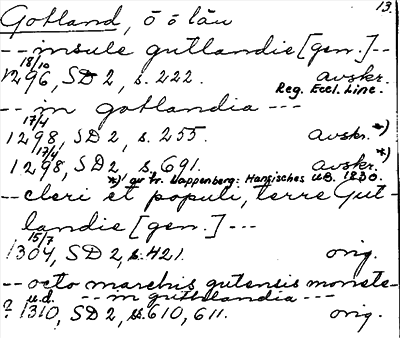 Gotland, ö o län 13.
-- insule gutlandie [gen.] --
18/10
1296, SD 2, s. 222. avskr.
Reg. Eccl. Linc.
-- in gotlandia ---
17/4
1298, SD 2, s. 255. avskr.*)
17/4
1298, SD 2, s. 691. avskr.*)
*) av fr. Lappenberg: Hansisches UB. 1830.
-- cleri et populi, terre Gut-
landie [gen.] ---
15/7
1304, SD 2, s. 421. orig.
-- octo marchis gutensis monete-
u.d. -- in guthlandia ---
? 1310, SD 2, s. 610, 611. orig.